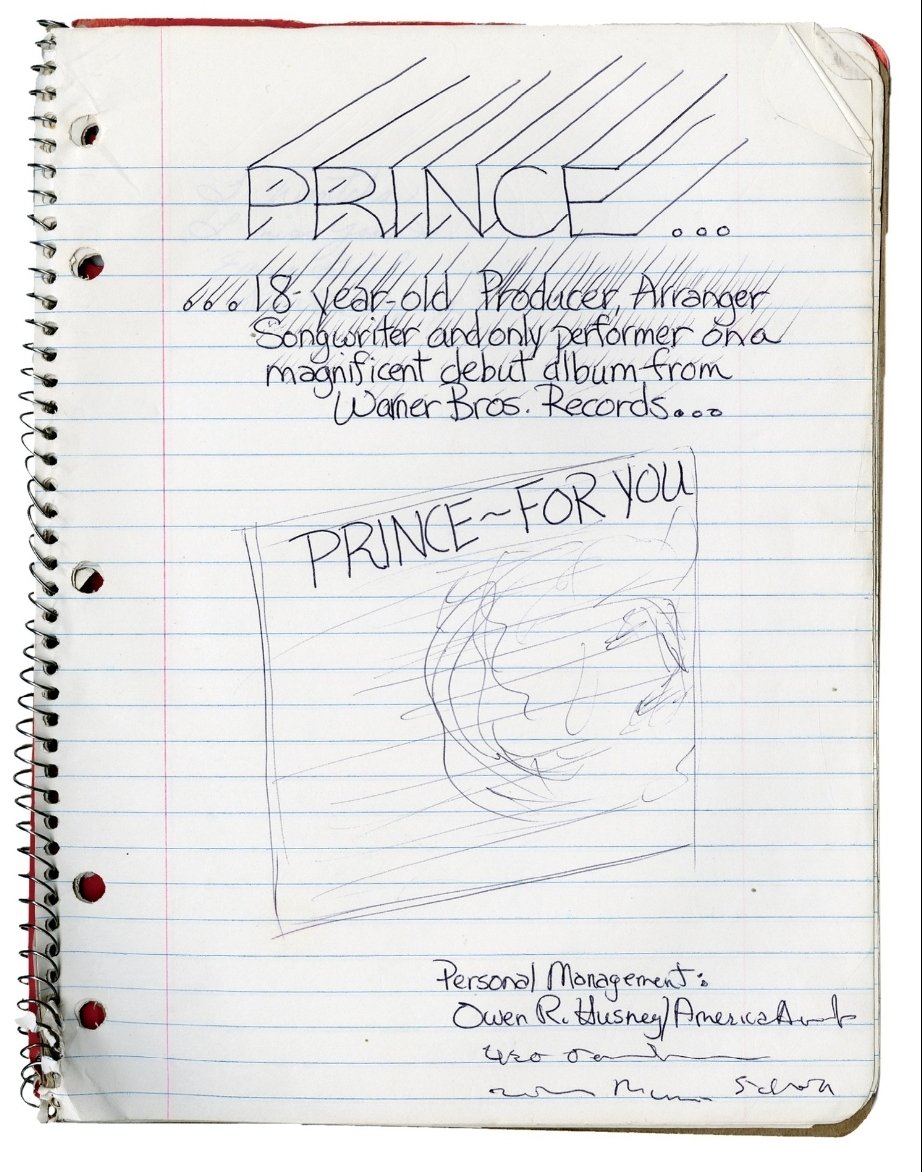 PRINCE...
...18-year-old Producer, Arranger
Songwriter and only performer on a
magnificent debut album from
Warner Bros. Records...
PRINCE~FOR YOU
Personal Management:
Owen R. Husney/America